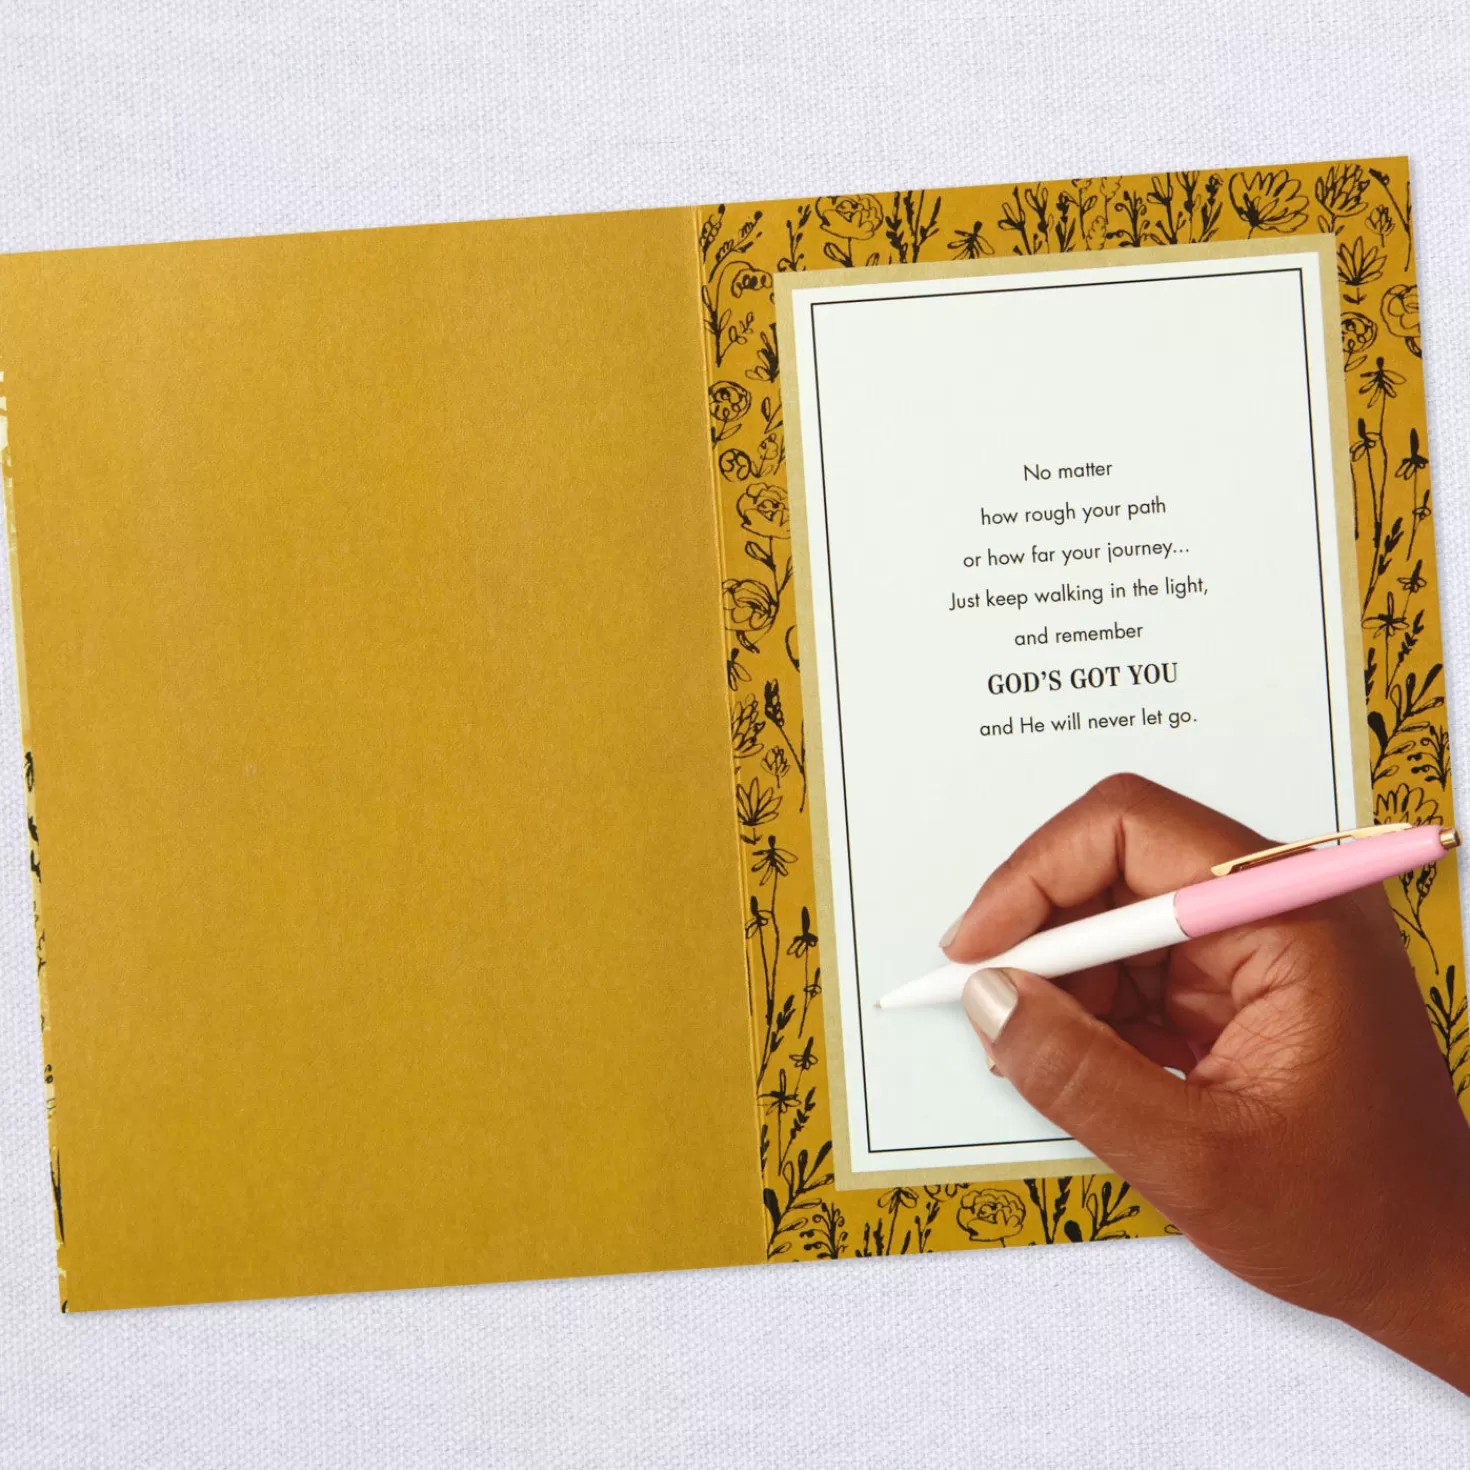 No matter
how rough your path
or how far your journey...
Just keep walking in the light,
and remember
GOD'S GOT YOU
and He will never let go.